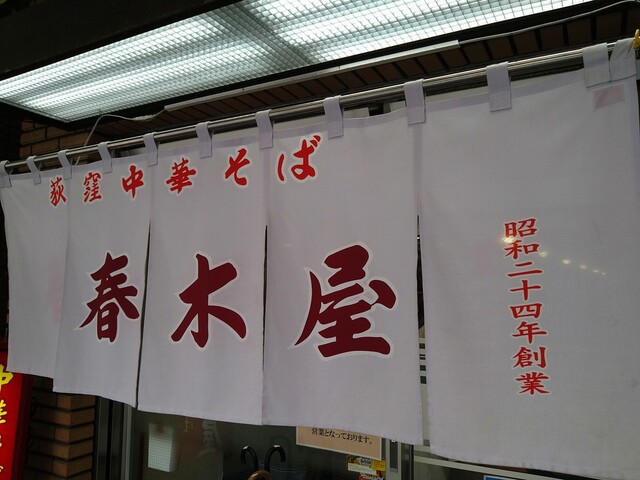 荻窪中華そば
春木屋
昭和二十四年創業
営業となっております。
中華そば